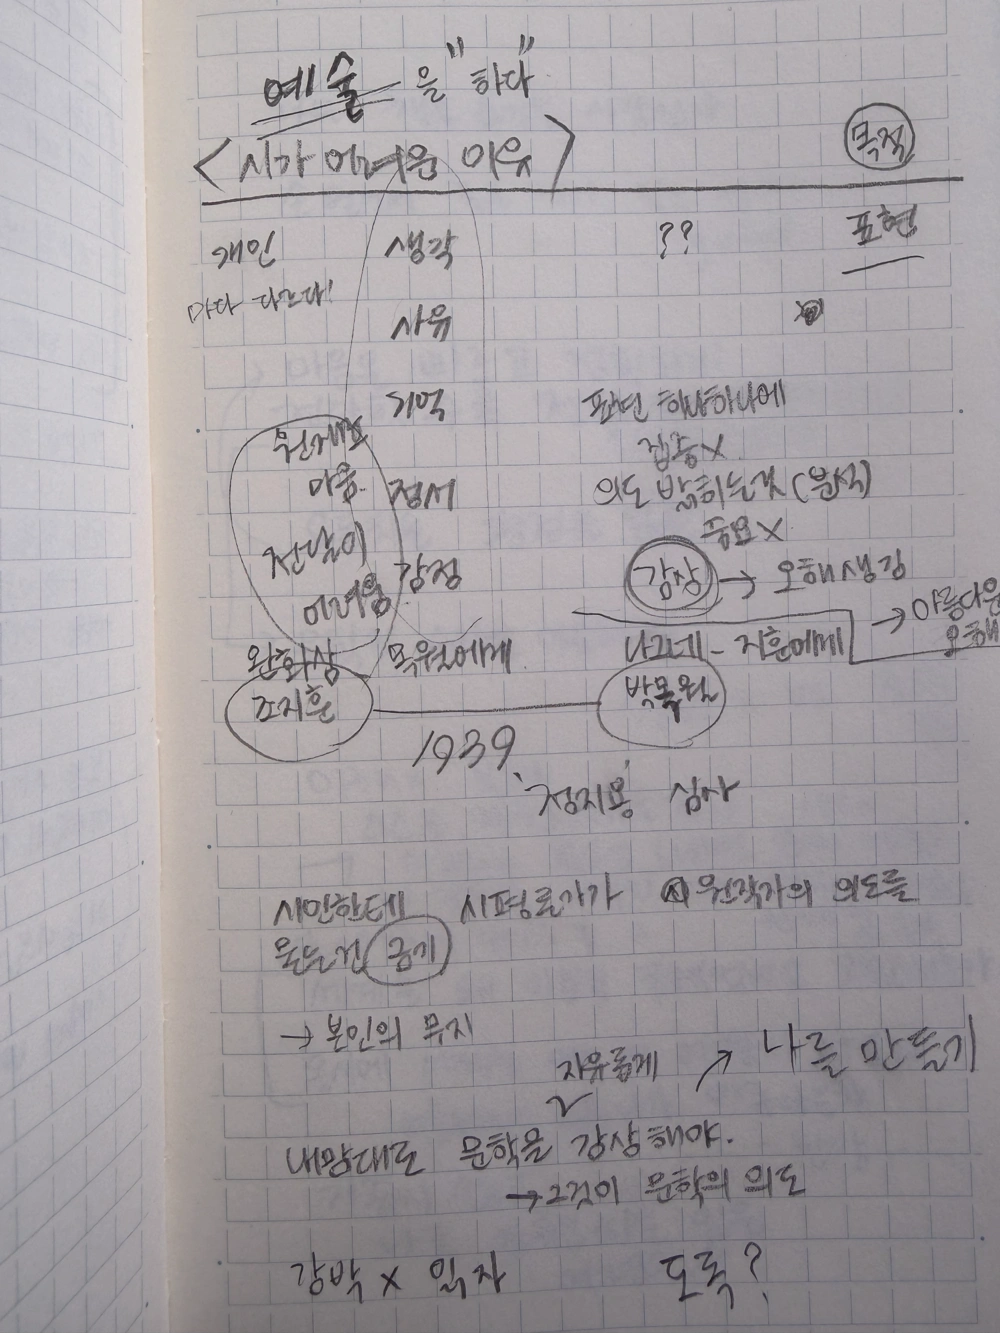 예술을 "하다"
<시가 어려운 이유> 목적
개인 생각 ?? 표현
마다 다르다!
사유
기억 표현 하나하나에
집중 X
마음 정서 의도 밝히는 것 (분석)
중요 X
전달이 감정 감상 → 오해 생김
어려움 → 아름다운 오해
완화삼 목월에게 나그네 - 지훈에게
조지훈 박목월
1939
'정지용' 심사
시인한테 시평론가가 원작자의 의도를
묻는건 금기
→ 본인의 무지
자유롭게 → 나를 만들기
내맘대로 문학을 감상해야.
→ 그것이 문학의 의도
강박 X 도록?